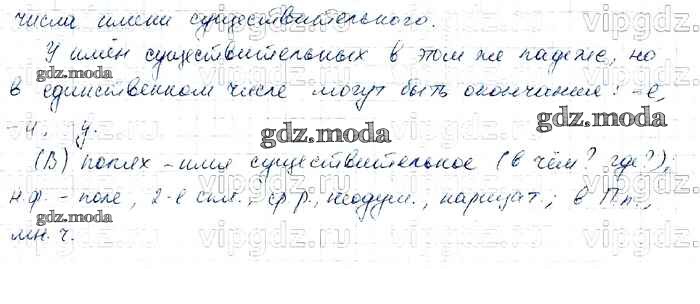 числа имени существительного.
У имён существительных в этом же падеже, но
в единственном числе могут быть окончания: -е,
-и, -у.
(В) полях - имя существительное (в чём? где?);
н.ф. - поле, 2-е скл., ср.р., неодуш., нарицат.; в П.п.,
мн.ч.
gdz.moda
gdz.moda
gdz.moda
gdz.moda
gdz.moda
vipgdz.ru
vipgdz.ru
vipgdz.ru